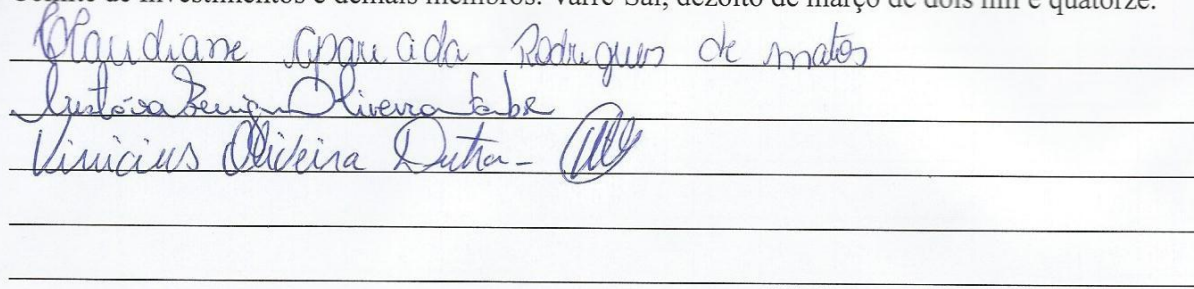 Comitê de Investimentos e demais membros. Varre-Sai, dezoito de março de dois mil e quatorze.
Claudiane Aparecida Rodrigues de Matos
Oliveira
Vinicius Oliveira Dutra -